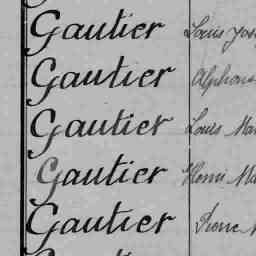 Gautier Louis
Gautier Alphons
Gautier Louis Ma
Gautier Henri Ma
Gautier